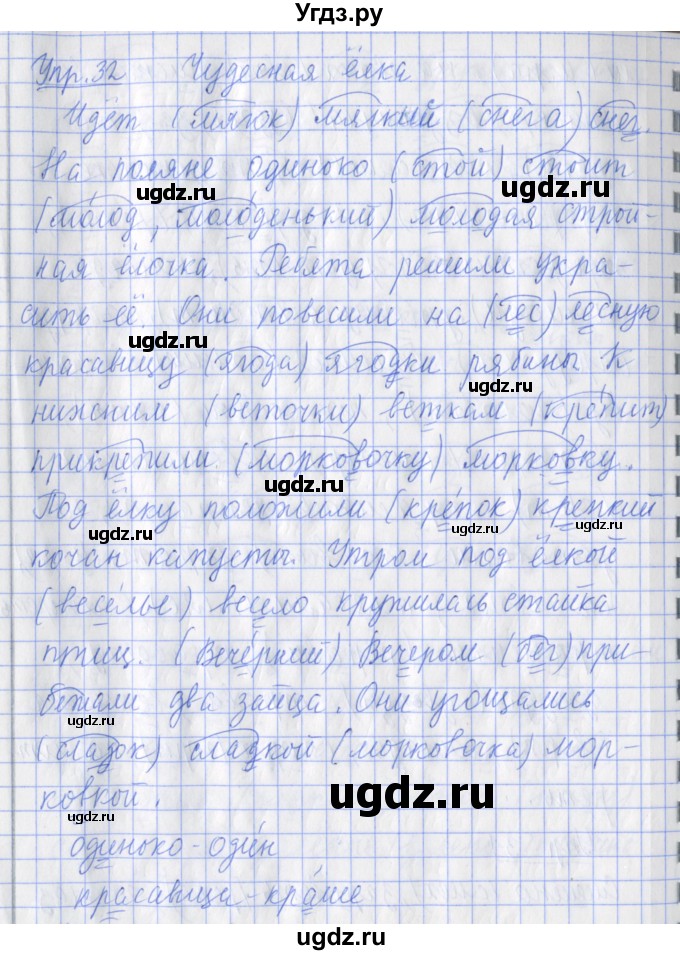 Угдз.ру
Упр. 32 Чудесная ёлка
Идёт (мягок) мягкий (снега) снег.
На поляне одиноко (стой) стоит
ugdz.ru ugdz.ru
(молод, молоденький) молодая строй-
ная ёлочка. Ребята решили укра-
ugdz.ru
сить её. Они повесили на (лес) лесную
красавицу (ягода) ягодки рябины. К
ugdz.ru
нижним (веточки) веткам (крепит)
прикрепили (морковочку) морковку.
ugdz.ru
Под ёлку положили (крепок) крепкий
ugdz.ru ugdz.ru
кочан капусты. Утром под ёлкой
(веселье) весело кружилась стайка
птиц. (Вечерний) Вечером (бег) при-
ugdz.ru
бежали два зайца. Они угощались
ugdz.ru
(сладок) сладкой (морковочка) мор-
ugdz.ru
ковкой.
ugdz.ru
одиноко - один
красавица - краше
ugdz.ru